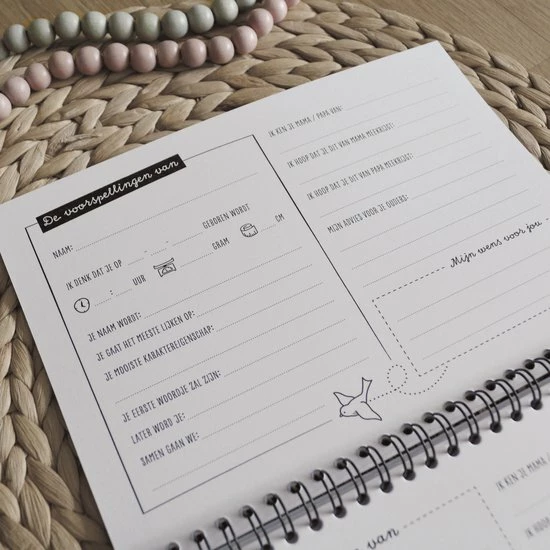 De voorspellingen van
NAAM:
IK DENK DAT JE OP - - GEBOREN WORDT
: UUR GRAM CM
JE NAAM WORDT:
JE GAAT HET MEESTE LIJKEN OP:
JE MOOISTE KARAKTEREIGENSCHAP:
JE EERSTE WOORDJE ZAL ZIJN:
LATER WORD JE:
SAMEN GAAN WE:
IK KEN JE MAMA / PAPA VAN:
IK HOOP DAT JE DIT VAN MAMA MEEKRIJGT:
IK HOOP DAT JE DIT VAN PAPA MEEKRIJGT:
MIJN ADVIES VOOR JE OUDERS:
Mijn wens voor jou
van
IK KEN JE M
IK HOOP